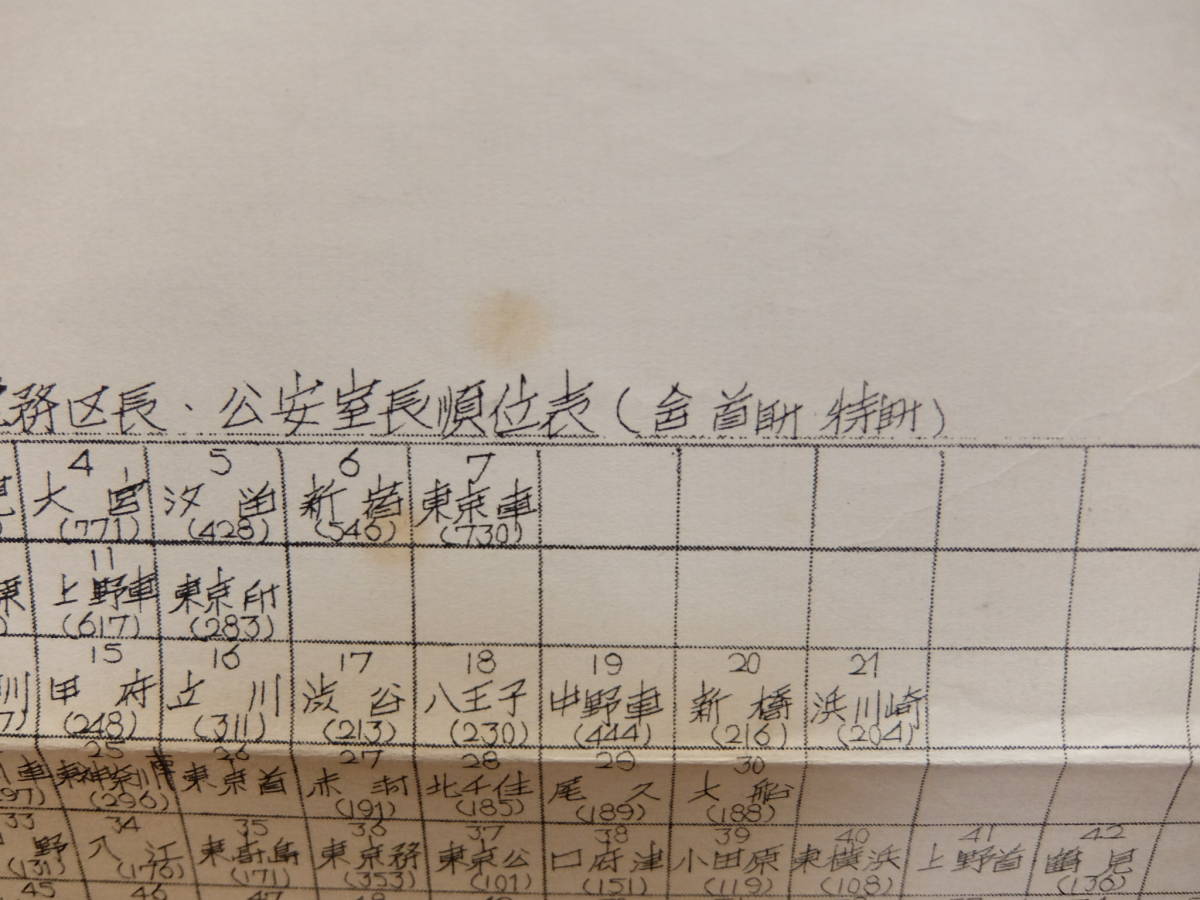 務区長、公安室長順位表(含首, 特)
4 5 6 7
大宮 汐留 新宿 東京車
(771) (428) (546) (730)
11
上野車 東京印
(617) (283)
15 16 17 18 19 20 21
川 甲府 立川 渋谷 八王子 中野車 新橋 浜川崎
7) (248) (311) (213) (230) (444) (216) (204)
25 26 27 28 29 30
車 東神奈川車 東京首 赤羽 北千住 尾久 大船
97) (296) (191) (185) (189) (188)
33 34 35 36 37 38 39 40 41 42
野 入江 東京務 東京公 口府津 小田原 東横浜 上野首 鶴見
(131) (176) (171) (353) (101) (151) (119) (108) (136)
45 46 47